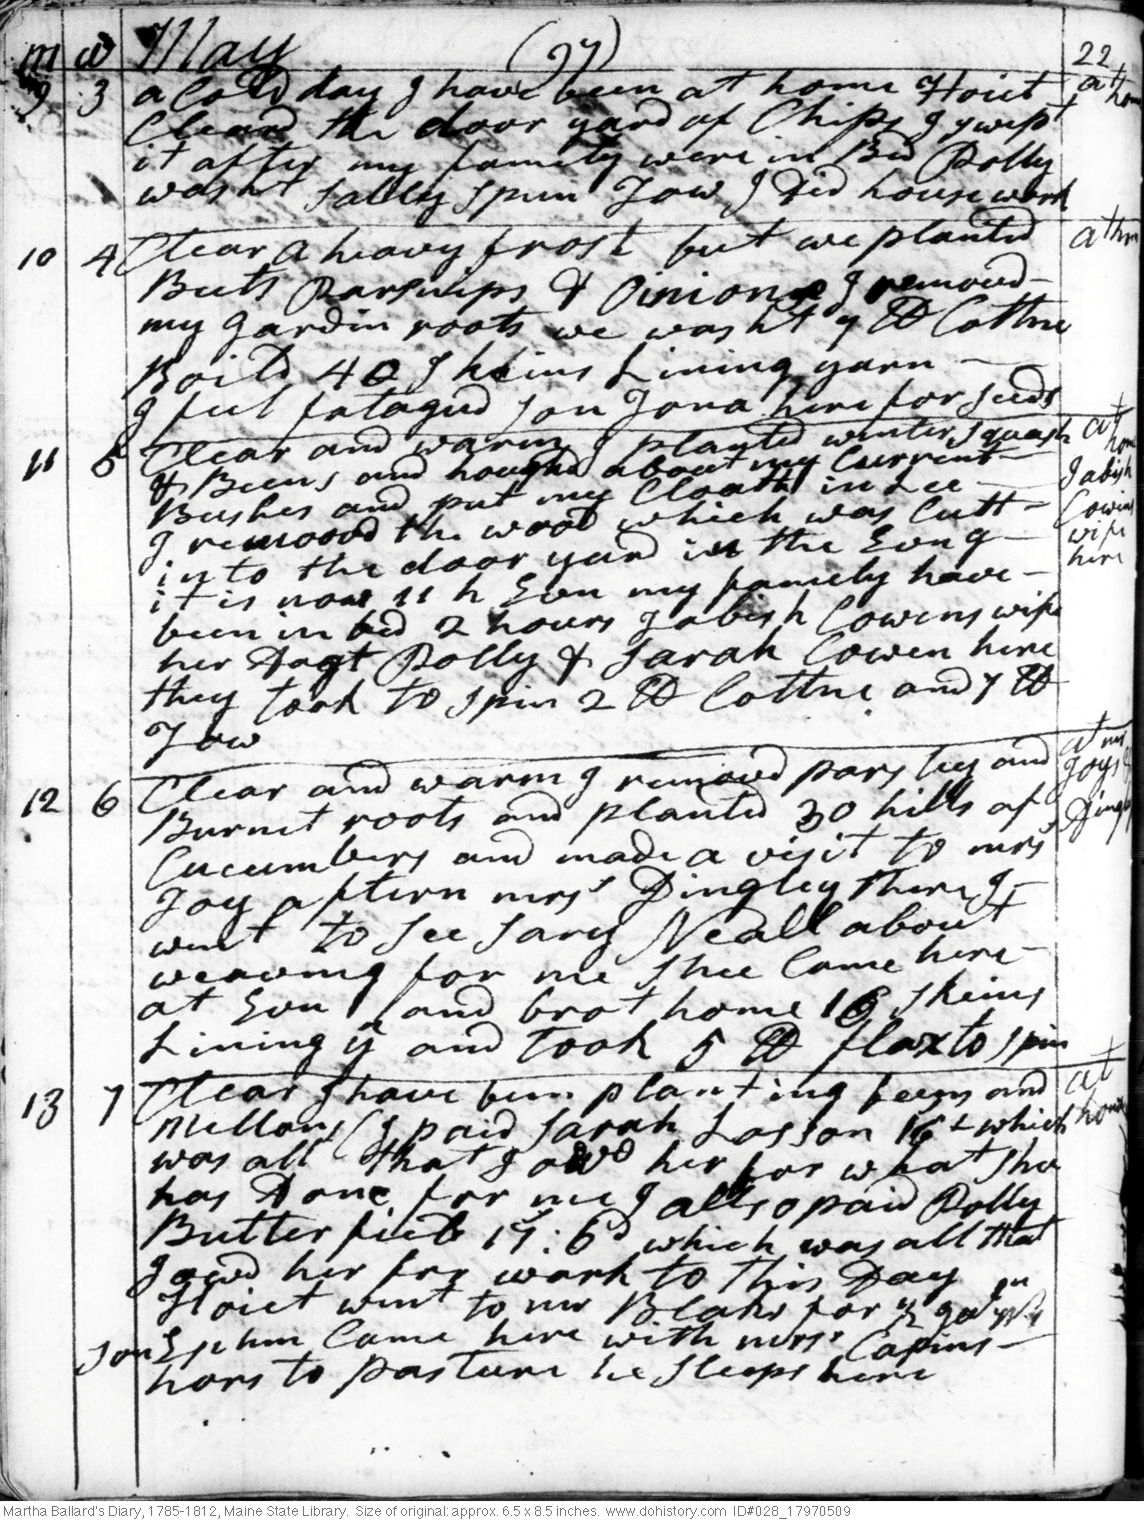 m w May (97) 22
9 3 a Cold day I have been at home Hoit at hom
Cleard the door yard of Chips I swept
it after my famely were in Bed Dolly
washt Sally spun Tow I Did house work
10 4 Clear a heavy frost but we planted at hm
Beets Parsnips & Oinions I removd
my gardin roots we washt 7 lb Cottne
Boild 40 Skeins Lining yarn
I feel fatagud son Jona here for seeds
11 5 Clear and warm I planted winter squash at hom
& Beens and houghd about my Current Jabish
Bushes and put my Cloath in Lee Cowins
I remoovd the wood which was Cutt wife
into the door yard in the Evng here
it is now 11 h Evn my famely have
been in bed 2 hours Jabish Cowens wife
her Dagt Polly & Sarah Cowen here
they took to spin 2 lb Cottne and 7 lb
Tow
12 6 Clear and warm I removd parsley and at mr
Burnet roots and planted 30 hills of Joys &
Cucumbers and made a visit to mrs Dingly
Joy aftern mrs Dingley there I
went to see Sary Neall about
weaving for me shee Came here
at Evn and brot home 16 skeins
Lining y and took 5 lb flax to spin
13 7 Clear I have been planting beens and at
Mellons I paid Sarah Lasson 16 which home
was all that I owd her for what she
has Done for me I allso paid Dolly
Butterfield 15:6d which was all that
I owd her for work to this Day
Hoict went to mr Blaks for ½ gn
son Ephm Came here with mrs Capins
hors to pasture he sleeps here
Martha Ballard's Diary, 1785-1812, Maine State Library. Size of original: approx. 6.5 x 8.5 inches. www.dohistory.com ID#028_17970509